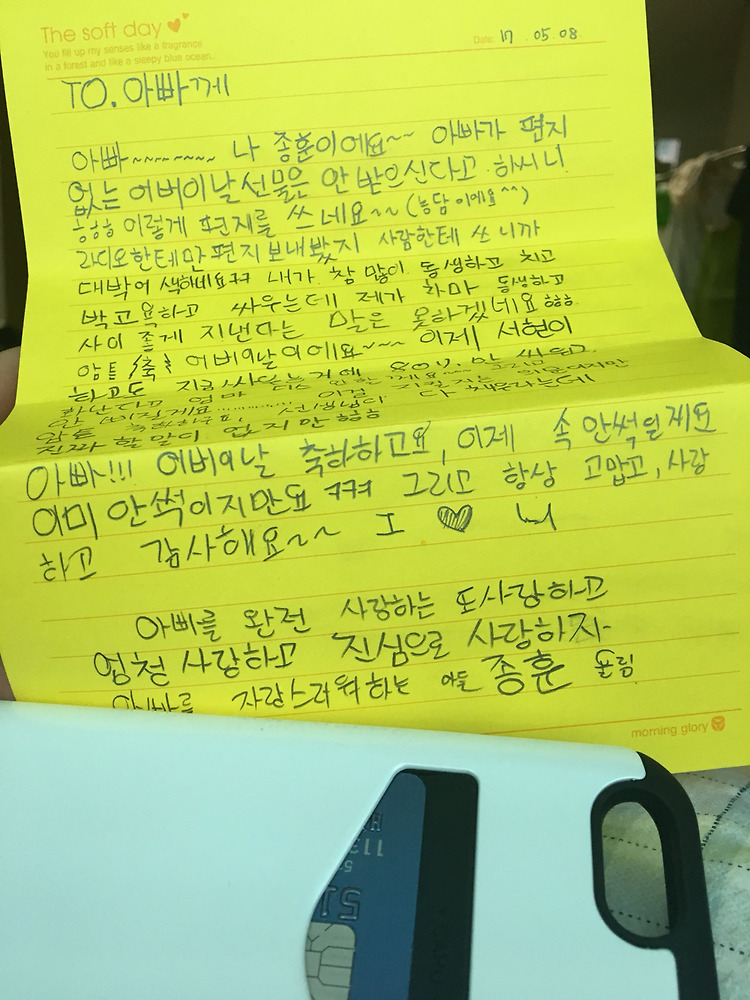 The soft day
You fill up my senses like a fragrance
in a forest and like a sleepy blue ocean.
Date: 17 . 05 . 08.
TO. 아빠께
아빠~~~~~~~~ 나 종훈이에요~~ 아빠가 편지
없는 어버이날 선물은 안 받으신다고 하씨니
ㅎㅎㅎ 이렇게 편지를 쓰네요~~ (농담이에요^^)
라디오한테만 편지 보내봤지 사람한테 쓰니까
대박 어색하네요ㅋㅋ 내가 참 많이 동생하고 치고
박고 욕하고 싸우는데 제가 차마 동생하고
사이 좋게 지낸다는 말은 못하겠네요 ㅎㅎㅎ
암튼 축 어버이날이에요~~~ 이제 서현이
하고도
화난다고 엄마
안 삐질게요 이걸 지킬지는 의문이지만
암튼 선생님이 다 채우라는데
진짜 할 말이 없지만 ㅎㅎㅎ
아빠!!! 어버이날 축하하고요, 이제 속 안썩일께요
이미 안썩이지만요 ㅋㅋㅋ 그리고 항상 고맙고, 사랑
하고 감사해요~~ I ♥ U
아빠를 완전 사랑하는 또사랑하고
엄청 사랑하고 진심으로 사랑하자
아빠를 자랑스러워하는 아들 종훈 올림
morning glory